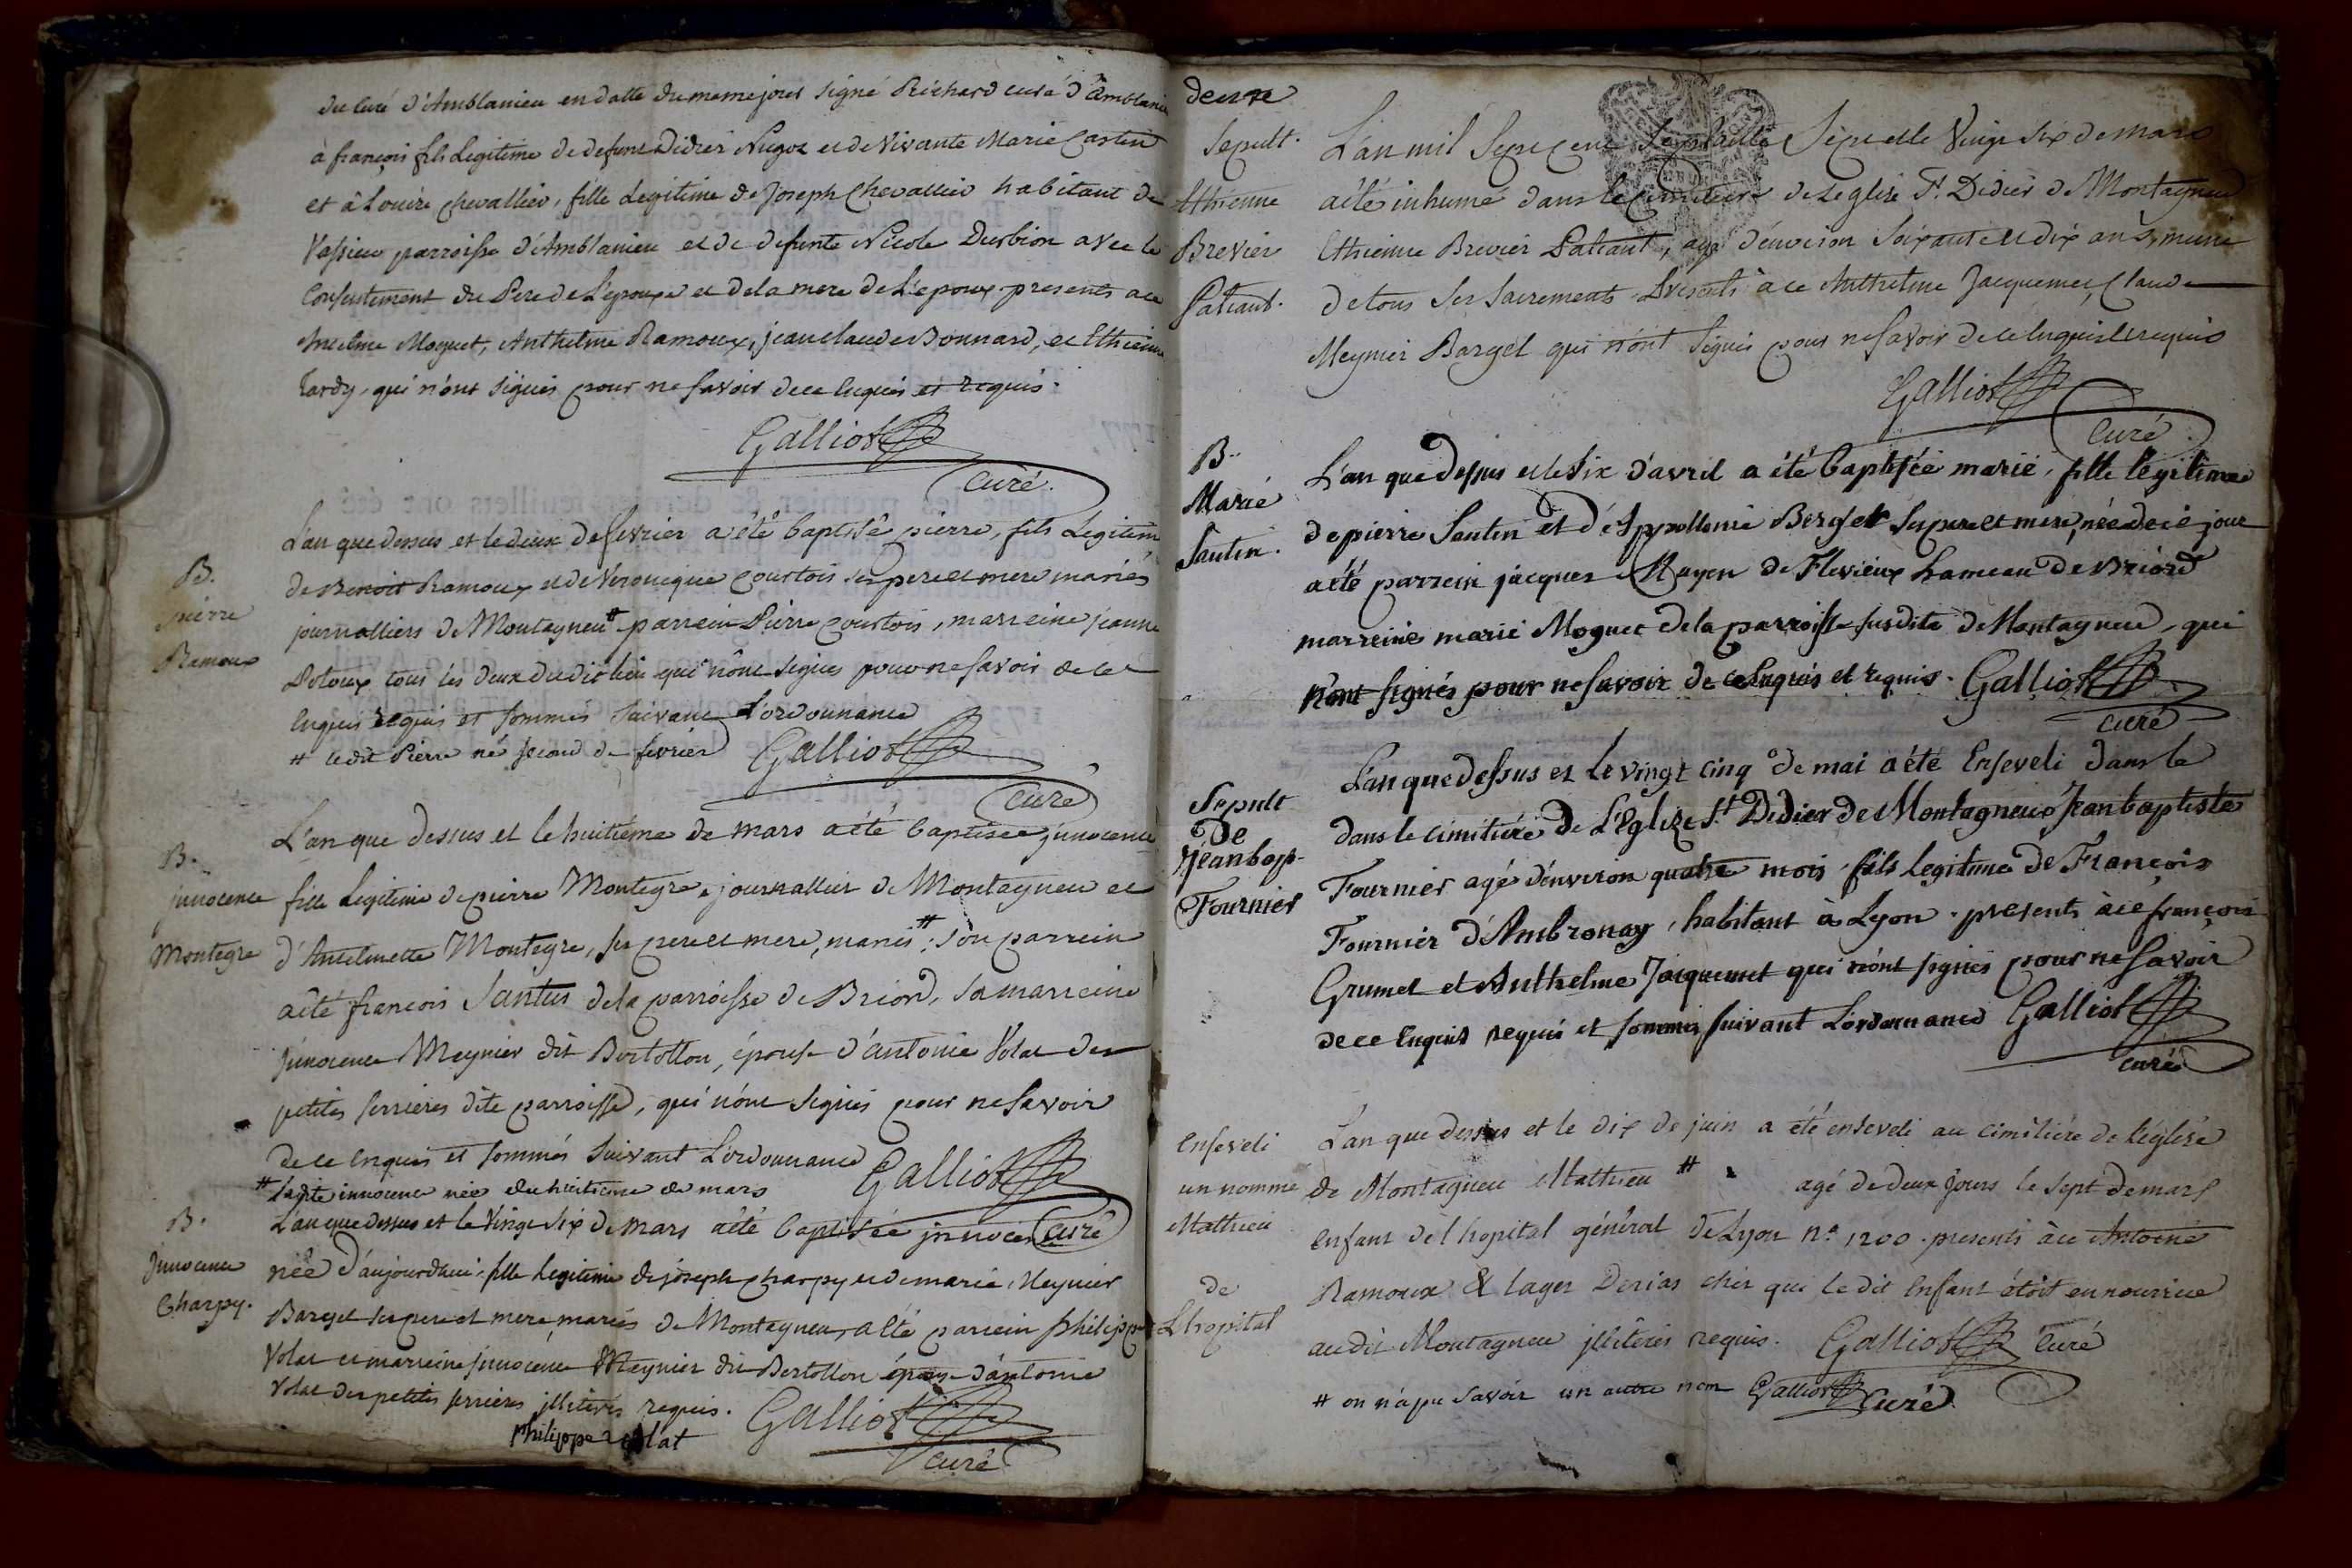 du curé d'Amblanieu en datte du meme jour signé Richard curé d'Amblanieu
à françois fils Legitime de defunt Didier Nugoz et de Vivante Marie Castin
et à Louïse Chevallier, fille Legitime de Joseph Chevallier habitant de
Vassieu parroisse d'Amblanieu et de defunte Nicole Durbion avec le
Consentement du Pere de L'epouse et de la mere de L'epoux presents a ce
Anselme Moguet, Anthelme Ramoux, jean claude Bonnard, et Ethienne
Tardy, qui n'ont signés pour ne savoir de ce enquis et requis.
Galliot
Curé.
B.
pierre
Ramoux
L'an que dessus et le deux de fevrier a été baptisé pierre, fils Legitime
de Benoit Ramoux et de Veronique Courtois ses pere et mere mariés
journalliers de Montagneu # parrein Pierre Courtois, marreine jeanne
tous les deux dudit lieu qui n'ont signés pour ne savoir de ce
enquis requis et sommés suivant L'ordonnance
# ledit Pierre né second de fevrier Galliot
Curé
B.
jnnocence
Montegre
L'an que dessus et le huitiéme de mars a été baptisée jnnocence
fille Legitime de pierre Montegre, journallier de Montagneu et
d'Antelmette Montegre, ses pere et mere, mariés #; son parrein
a été françois Santus de la parroisse de Briord, sa marreine
Jnnocence Meynier dit Bertollon, épouse d'antoine Volat des
petites serrieres dite parroisse, qui n'ont signés pour ne savoir
de ce enquis et sommés suivant L'ordonnance Galliot
# Ladite innocence née du huitieme de mars
Curé
B.
Jnnocence
Charpy.
L'an que dessus et le Vingt six de mars a été baptisée jnnocence
née d'aujourdhui, fille legitime de joseph Charpy et de marie Meynier
Bargel ses pere et mere mariés de Montagneu, a été parrein philippe
Volat et marreine jnnocence Meynier dit Bertollon épouse d'antoine
Volat des petites serrieres jlliterés requis. Galliot
philippe volat
Curé
deuxe
Sepult.
Ethienne
Brevier
Pataant.
L'an mil Sept cent Septante Sept et le Vingt six de mars
a été inhumé dans le cimitiere de Leglise St. Didier de Montagneu
Ethienne Brevier Pataant, agé d'environ soixante et dix ans, muni
de tous ses sacrements. Presents à ce Anthelme Jacquemet, Claude
Meynier Bargel qui n'ont signés pour ne savoir de ce enquis et requis
Galliot
Curé.
B..
Marie
Santin.
L'an que dessus et le six d'avril a été baptisée marie, fille legitime
de pierre Santin et d'Appollonie Berget ses pere et mere, née de ce jour
a été parrein jacques Rayen de Flevieux hameau de Briord
marreine marie Moguet de la parroisse susdite de Montagneu, qui
n'ont signés pour ne savoir de ce enquis et requis. Galliot
Curé
Sepult
De
Jeanbap-
Fournier
L'an que dessus et Le vingt cinq de mai a été Enseveli dans le
dans le cimitiére de L'Eglize St Didier de Montagneu Jean baptiste
Fournier agé d'environ quatre mois, fils legitime de François
Fournier d'Ambronay, habitant à Lyon. presents à ce françois
Grumet et Anthelme Jacquemet qui n'ont signés pour ne savoir
de ce Enquis requis et sommés suivant L'ordonnance Galliot
Curé
Enseveli
un nommé
Mathieu
de
Lhopital
L'an que dessus et le dix de juin a été enseveli au cimitiére de leglise
de Montagneu Mathieu # agé de deux jours le sept de mars
enfant de l'hopital général de Lyon n.o 1200. presents à ce Antoine
Ramoux & lager Derias chés qui le dit Enfant étoit en nourrice
au dit Montagneu jlliterés requis. Galliot Curé
# on n'a pu savoir un autre nom Galliot Curé